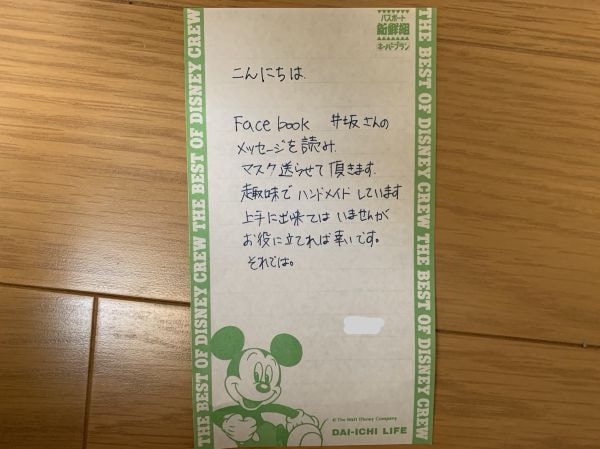 パスポート
新鮮組
キーパープラン
THE BEST OF DISNEY CREW THE BEST OF DISNEY CREW
THE BEST OF DISNEY CREW THE BEST OF DISNEY CREW
こんにちは
Facebook 井坂さんの
メッセージを読み
マスク送らせて頂きます.
趣味でハンドメイドしています
上手に出来てはいませんが
お役に立てれば幸いです。
それでは。
© The Walt Disney Company
DAI-ICHI LIFE